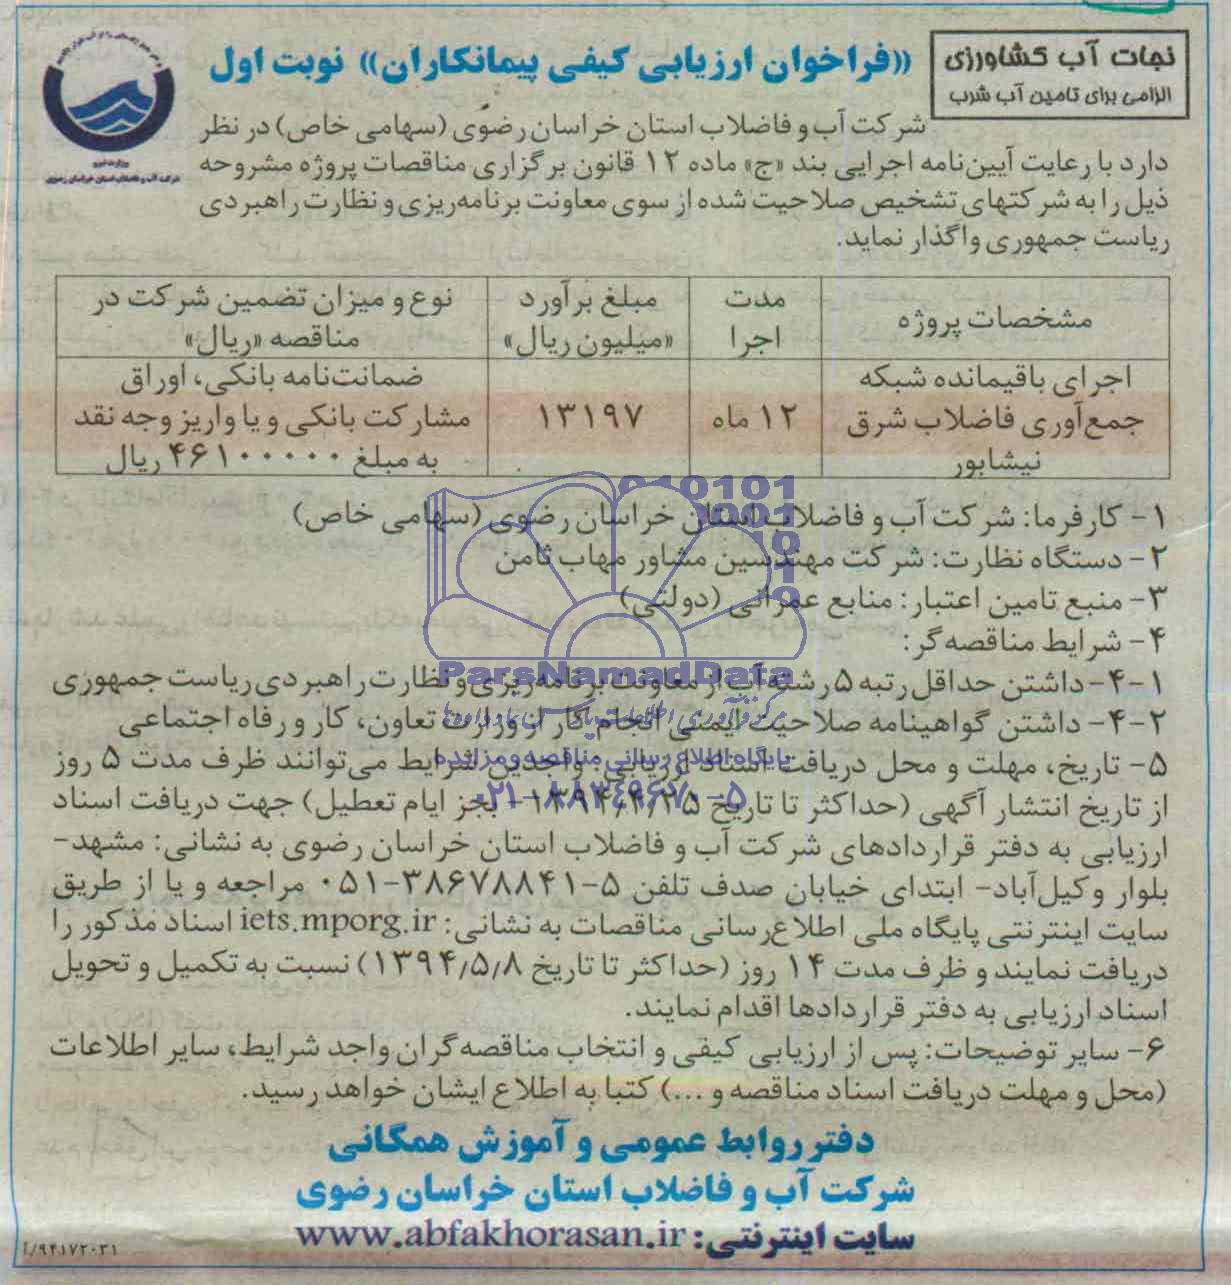 نجات آب کشاورزی
الزامی برای تامین آب شرب
«فراخوان ارزیابی کیفی پیمانکاران» نوبت اول
وزارت نیرو
شرکت آب و فاضلاب استان خراسان رضوی
شرکت آب و فاضلاب استان خراسان رضوی (سهامی خاص) در نظر
دارد با رعایت آیین‌نامه اجرایی بند «ج» ماده ۱۲ قانون برگزاری مناقصات پروژه مشروحه
ذیل را به شرکتهای تشخیص صلاحیت شده از سوی معاونت برنامه‌ریزی و نظارت راهبردی
ریاست جمهوری واگذار نماید.
مشخصات پروژه
مدت
اجرا
مبلغ برآورد
«میلیون ریال»
نوع و میزان تضمین شرکت در
مناقصه «ریال»
اجرای باقیمانده شبکه
جمع‌آوری فاضلاب شرق
نیشابور
۱۲ ماه
۱۳۱۹۷
ضمانت‌نامه بانکی، اوراق
مشارکت بانکی و یا واریز وجه نقد
به مبلغ ۴۶۱۰۰۰۰۰۰ ریال
۱- کارفرما: شرکت آب و فاضلاب استان خراسان رضوی (سهامی خاص)
۲- دستگاه نظارت: شرکت مهندسین مشاور مهاب ثامن
۳- منبع تامین اعتبار: منابع عمرانی (دولتی)
۴- شرایط مناقصه‌گر:
۴-۱- داشتن حداقل رتبه ۵ رشته آب از معاونت برنامه‌ریزی و نظارت راهبردی ریاست جمهوری
۴-۲- داشتن گواهینامه صلاحیت ایمنی انجام کار از وزارت تعاون، کار و رفاه اجتماعی
۵- تاریخ، مهلت و محل دریافت اسناد ارزیابی: واجدین شرایط می‌توانند ظرف مدت ۵ روز
از تاریخ انتشار آگهی (حداکثر تا تاریخ ۱۳۹۴/۴/۲۵ - بجز ایام تعطیل) جهت دریافت اسناد
ارزیابی به دفتر قراردادهای شرکت آب و فاضلاب استان خراسان رضوی به نشانی: مشهد-
بلوار وکیل‌آباد- ابتدای خیابان صدف تلفن ۵-۳۸۶۷۸۸۴۱-۰۵۱ مراجعه و یا از طریق
سایت اینترنتی پایگاه ملی اطلاع‌رسانی مناقصات به نشانی: iets.mporg.ir اسناد مذکور را
دریافت نمایند و ظرف مدت ۱۴ روز (حداکثر تا تاریخ ۱۳۹۴/۵/۸) نسبت به تکمیل و تحویل
اسناد ارزیابی به دفتر قراردادها اقدام نمایند.
۶- سایر توضیحات: پس از ارزیابی کیفی و انتخاب مناقصه‌گران واجد شرایط، سایر اطلاعات
(محل و مهلت دریافت اسناد مناقصه و ...) کتبا به اطلاع ایشان خواهد رسید.
دفتر روابط عمومی و آموزش همگانی
شرکت آب و فاضلاب استان خراسان رضوی
سایت اینترنتی: www.abfakhorasan.ir
۹۴۱۷۲۰۳۱/آ
ParsNamadData
پایگاه اطلاع رسانی مناقصه و مزایده
۰۲۱-۸۸۳۴۹۶۷۰-۵